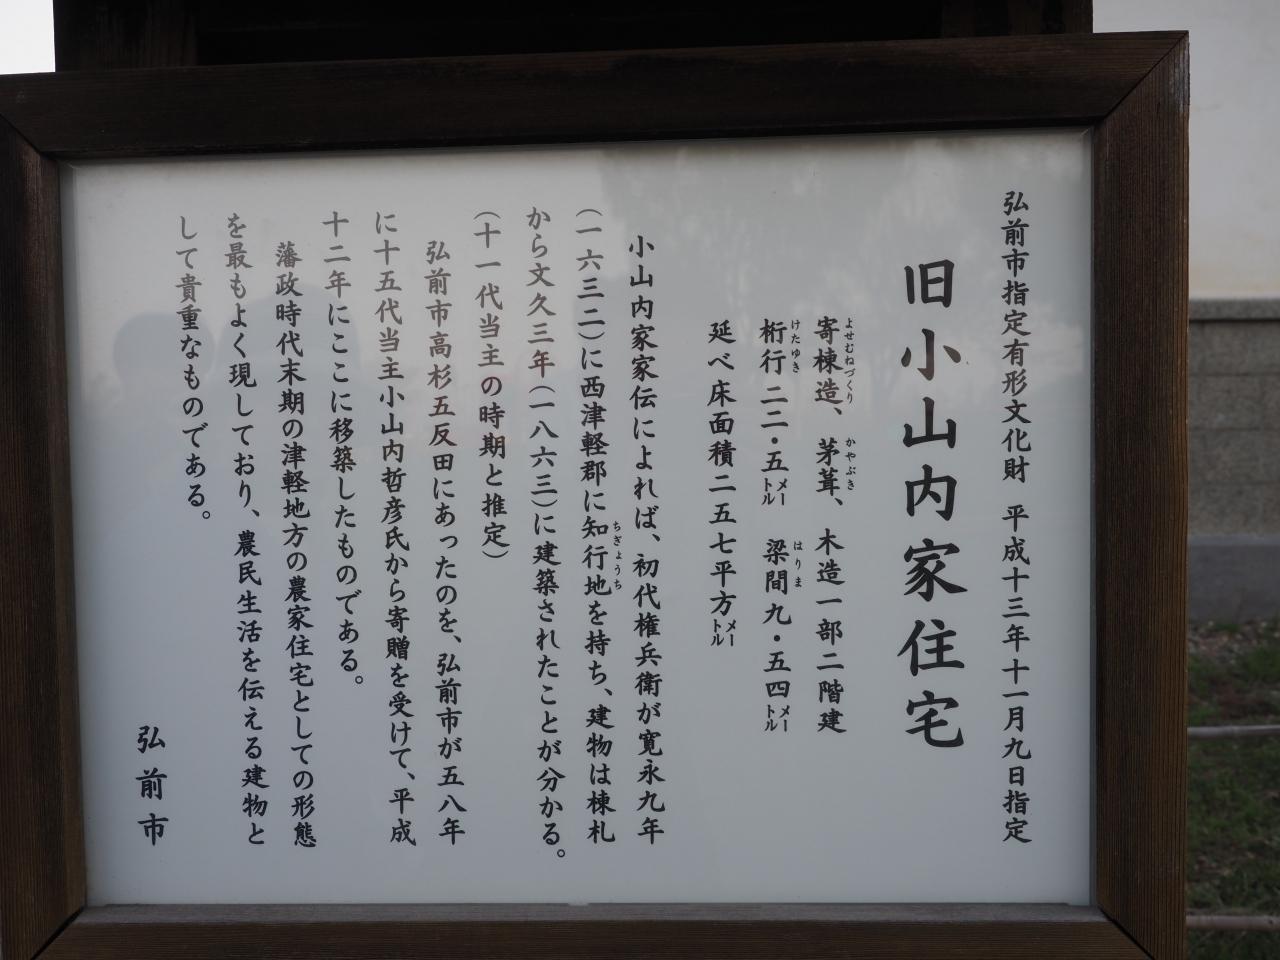 弘前市指定有形文化財　平成十三年十一月九日指定
旧小山内家住宅
寄棟造、茅葺、木造一部二階建
よせむねづくり　かやぶき
桁行二二・五メートル　梁間九・五四メートル
けたゆき　はりま
延べ床面積二五七平方メートル
小山内家家伝によれば、初代権兵衛が寛永九年
（一六三二）に西津軽郡に知行地を持ち、建物は棟札
ちぎょうち
から文久三年（一八六三）に建築されたことが分かる。
（十一代当主の時期と推定）
弘前市高杉五反田にあったのを、弘前市が五八年
に十五代当主小山内哲彦氏から寄贈を受けて、平成
十二年にここに移築したものである。
藩政時代末期の津軽地方の農家住宅としての形態
を最もよく現しており、農民生活を伝える建物と
して貴重なものである。
弘前市